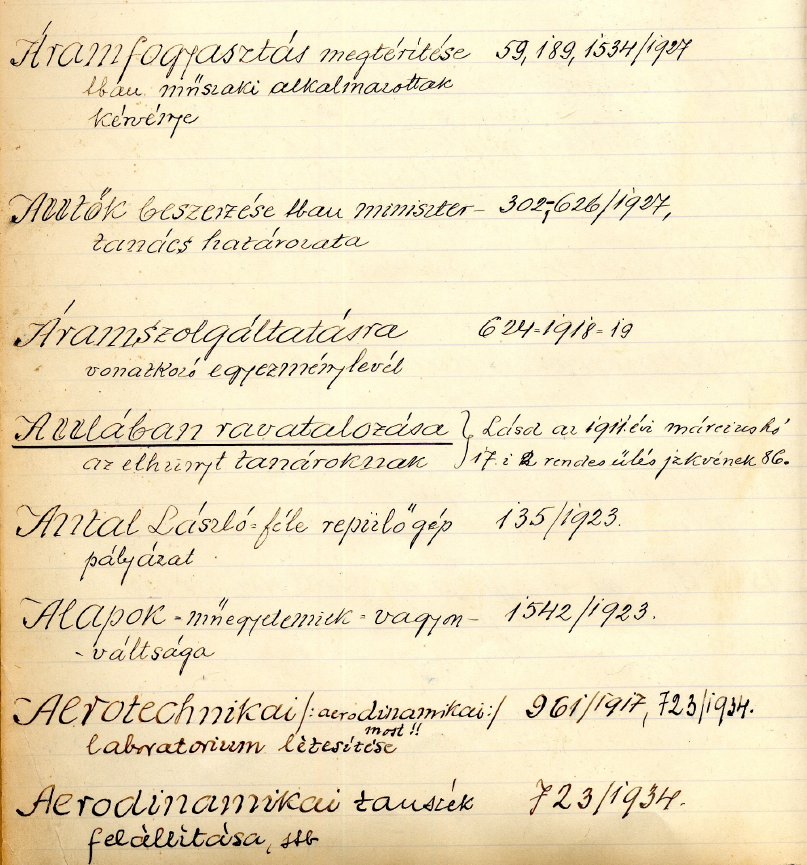 Áramfogyasztás megtérítése 59, 189, 1534/1927
tbau műszaki alkalmazottak
kérvénye
Autók beszerzése tbau miniszter- 302-626/1927,
tanács határozata
Áramszolgáltatásra 624-1918-19
vonatkozó egyezménylevél
Aulában ravatalozása } Lásd az 1911. évi március hó
az elhúnyt tanároknak 17. i 2 rendes ülés jzkvének 86.
Antal László-féle repülőgép 135/1923.
pályázat
Alapok -műegyetemiek- vagyon- 1542/1923.
-váltsága
Aerotechnikai /:aerodinamikai:/ 961/1917, 723/1934.
most!!
laboratorium létesítése
Aerodinamikai tanszék 723/1934.
felállítása, stb